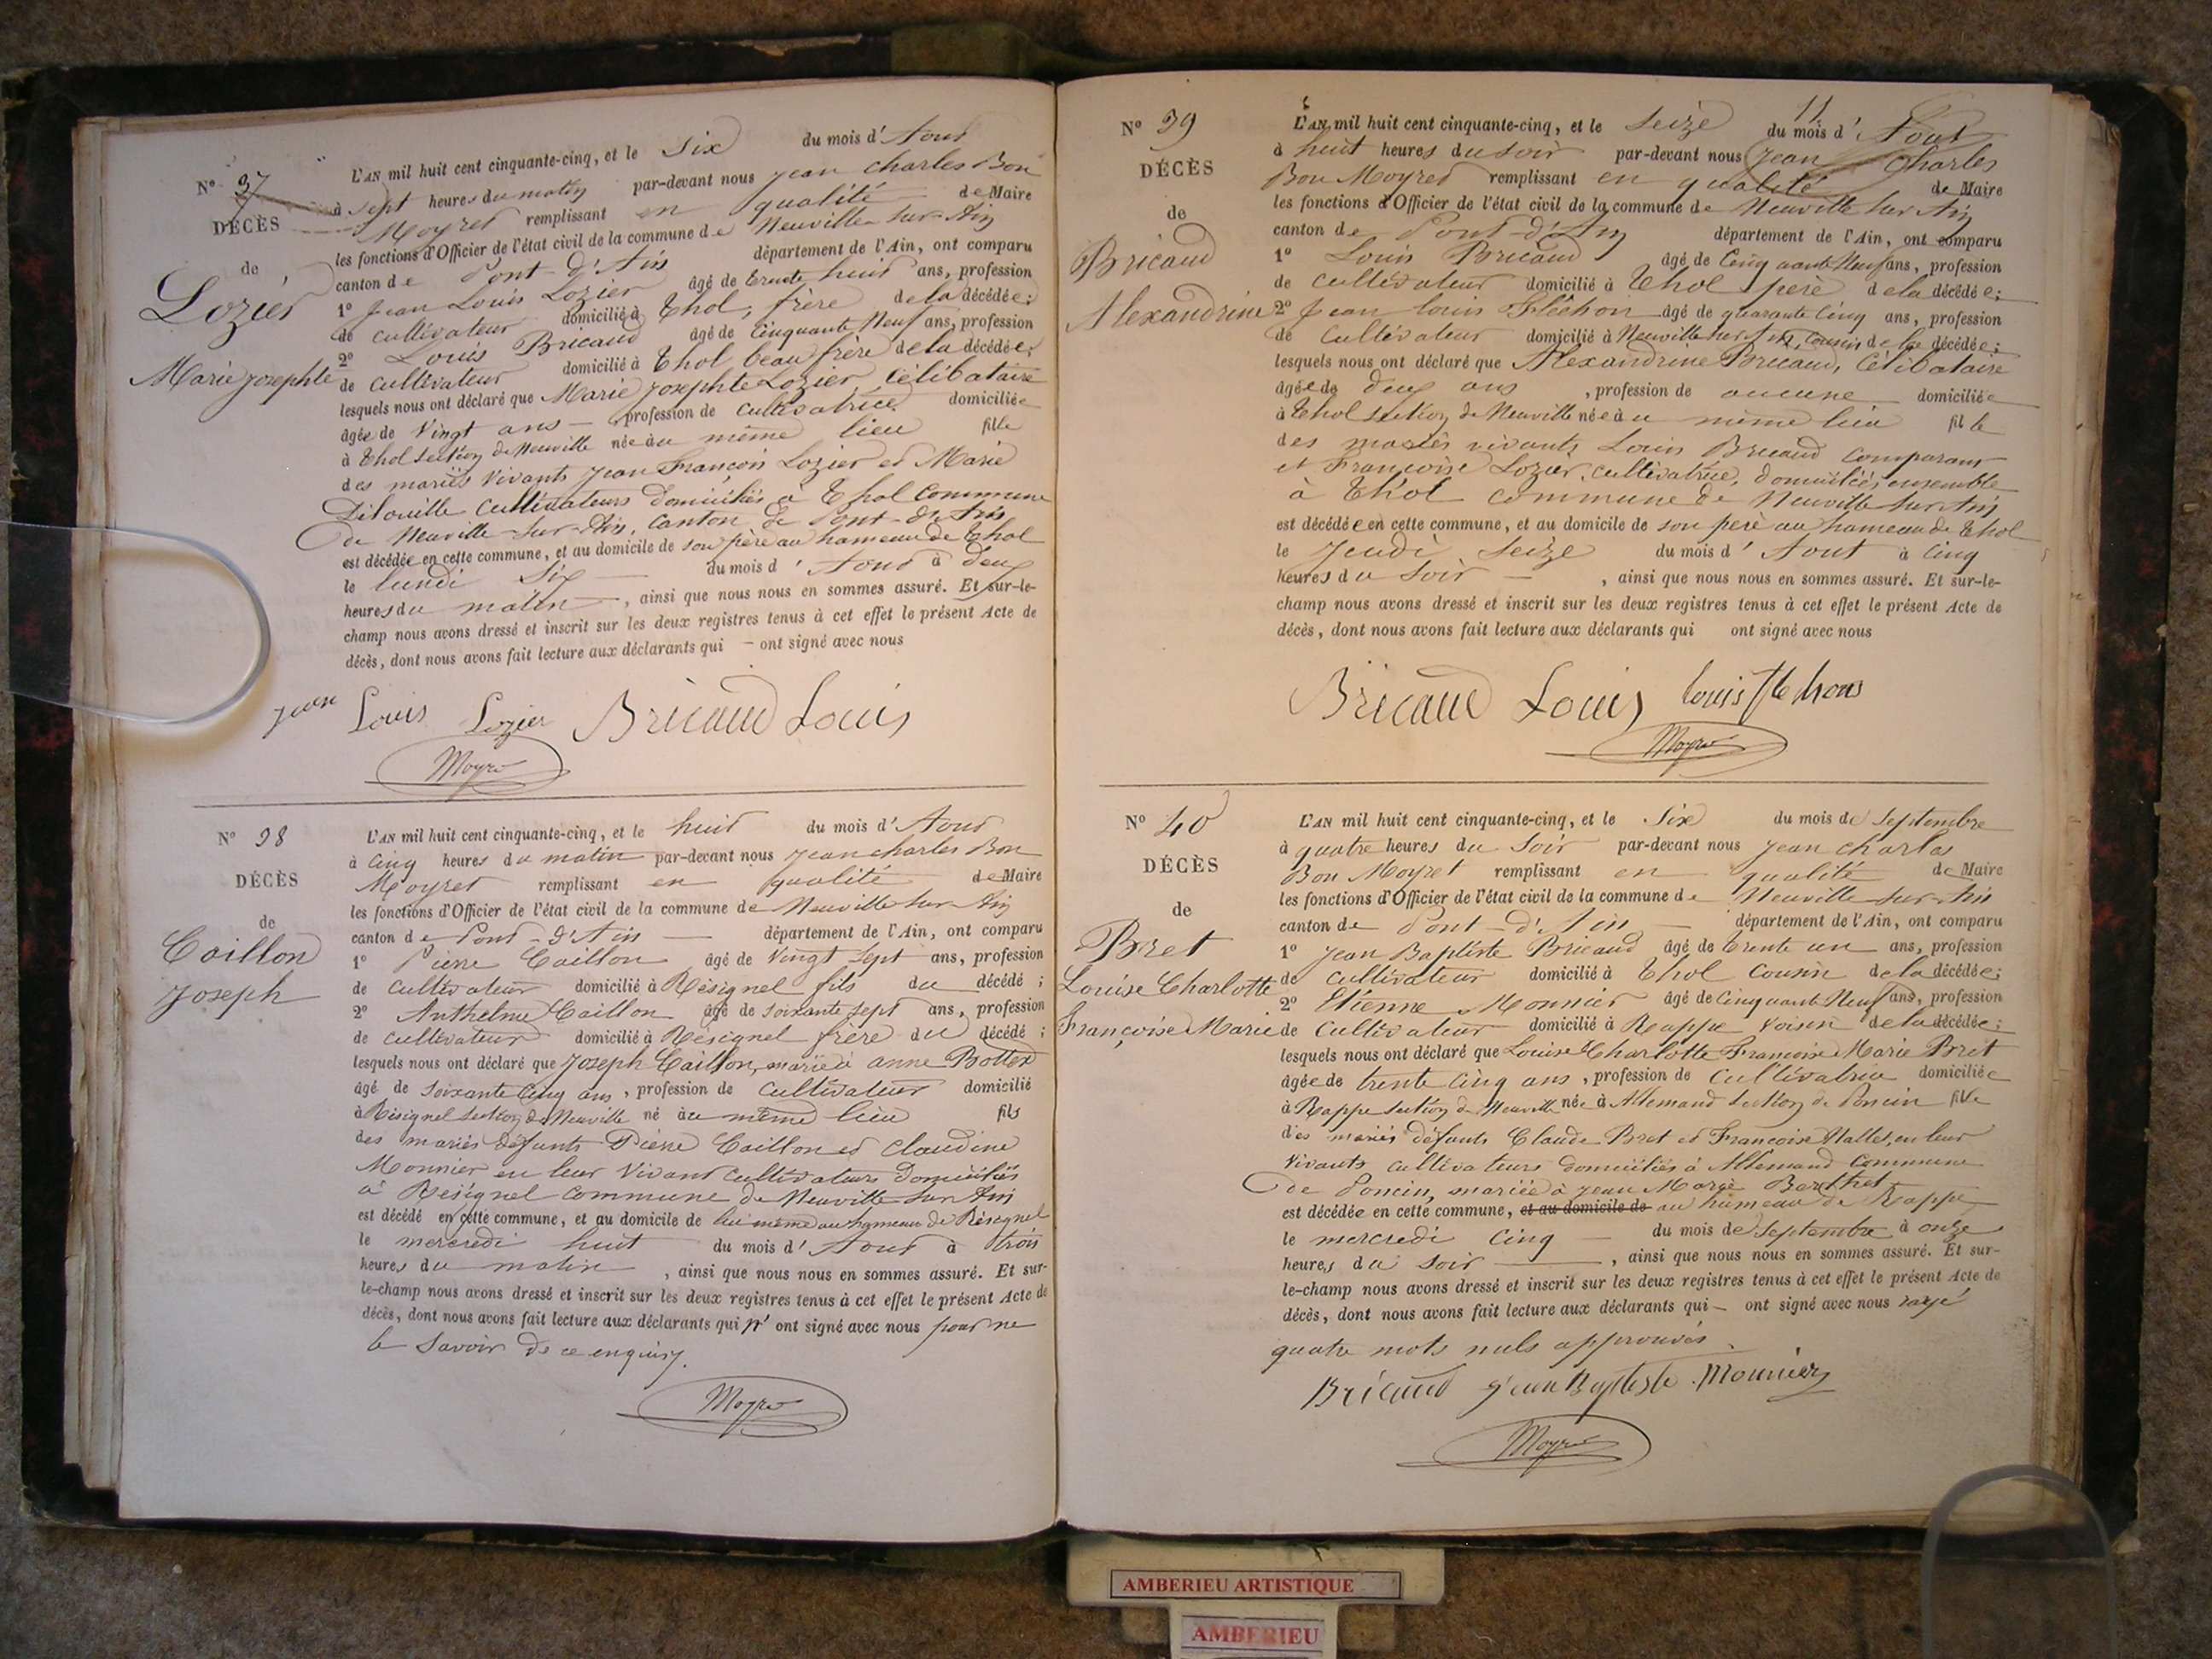 N° 37
DÉCÈS
de
Lozier
Marie Josephte
L'AN mil huit cent cinquante-cinq, et le Six du mois d'Aout
à Sept heures du matin par-devant nous Jean Charles Bon
Moyret remplissant en qualité de Maire
les fonctions d'Officier de l'état civil de la commune de Neuville sur Ain
canton de Pont-d'Ain département de l'Ain, ont comparu
1° Jean Louis Lozier âgé de trente huit ans, profession
de cultivateur domicilié à Thol, frère de la décédée;
2° Louis Bricaud âgé de cinquante Neuf ans, profession
de cultivateur domicilié à Thol beau frère de la décédée;
lesquels nous ont déclaré que Marie Josephte Lozier, Célibataire
âgée de vingt ans profession de cultivatrice domiciliée
à Thol section de Neuville née au même lieu fille
des mariés vivants Jean François Lozier et Marie
cultivateurs domiciliés à Thol Commune
de Neuville-sur-Ain, canton de Pont-d'Ain
est décédée en cette commune, et au domicile de son père au hameau de Thol
le lundi Six du mois d'Aout à deux
heures du matin, ainsi que nous nous en sommes assuré. Et sur-le-
champ nous avons dressé et inscrit sur les deux registres tenus à cet effet le présent Acte de
décès, dont nous avons fait lecture aux déclarants qui — ont signé avec nous
Jean Louis Lozier Bricaud Louis
Moyret
N° 38
DÉCÈS
de
Caillon
Joseph
L'AN mil huit cent cinquante-cinq, et le huit du mois d'Aout
à cinq heures du matin par-devant nous Jean Charles Bon
Moyret remplissant en qualité de Maire
les fonctions d'Officier de l'état civil de la commune de Neuville sur Ain
canton de Pont-d'Ain département de l'Ain, ont comparu
1° Pierre Caillon âgé de vingt sept ans, profession
de cultivateur domicilié à Résignel fils du décédé;
2° Anthelme Caillon âgé de soixante sept ans, profession
de cultivateur domicilié à Résignel frère du décédé;
lesquels nous ont déclaré que Joseph Caillon, marié à anne Bottex
âgé de soixante cinq ans, profession de cultivateur domicilié
à Résignel section de Neuville né au même lieu fils
des mariés défunts Pierre Caillon et Claudine
Monnier en leur vivant cultivateurs Domiciliés
à Résignel commune de Neuville sur Ain
est décédé en cette commune, et au domicile de lui même au hameau de Résignel
le mercredi huit du mois d'Aout à trois
heures du matin, ainsi que nous nous en sommes assuré. Et sur-
le-champ nous avons dressé et inscrit sur les deux registres tenus à cet effet le présent Acte de
décès, dont nous avons fait lecture aux déclarants qui n'ont signé avec nous pour ne
le savoir de ce enquis.
Moyret
11
N° 39
DÉCÈS
de
Bricaud
Alexandrine
L'AN mil huit cent cinquante-cinq, et le Seize du mois d'Aout
à huit heures du soir par-devant nous Jean Charles
Bon Moyret remplissant en qualité de Maire
les fonctions d'Officier de l'état civil de la commune de Neuville sur Ain
canton de Pont-d'Ain département de l'Ain, ont comparu
1° Louis Bricaud âgé de cinquante Neuf ans, profession
de cultivateur domicilié à Thol père de la décédée;
2° Jean Louis Fléchon âgé de quarante cinq ans, profession
de cultivateur domicilié à Neuville sur Ain, cousin de la décédée;
lesquels nous ont déclaré que Alexandrine Bricaud, Célibataire
âgée de deux ans, profession de aucune domiciliée
à Thol section de Neuville née au même lieu fille
des mariés vivants Louis Bricaud comparant
et Françoise Lozier, cultivatrice, domiciliés ensemble
à Thol commune de Neuville sur Ain
est décédée en cette commune, et au domicile de son père au hameau de Thol
le Jeudi Seize du mois d'Aout à cinq
heures du Soir, ainsi que nous nous en sommes assuré. Et sur-le-
champ nous avons dressé et inscrit sur les deux registres tenus à cet effet le présent Acte de
décès, dont nous avons fait lecture aux déclarants qui ont signé avec nous
Bricaud Louis Louis flehons
Moyret
N° 40
DÉCÈS
de
Bret
Louise Charlotte
Françoise Marie
L'AN mil huit cent cinquante-cinq, et le Six du mois de Septembre
à quatre heures du Soir par-devant nous Jean Charles
Bon Moyret remplissant en qualité de Maire
les fonctions d'Officier de l'état civil de la commune de Neuville-sur-Ain
canton de Pont-d'Ain département de l'Ain, ont comparu
1° Jean Baptiste Bricaud âgé de trente un ans, profession
de cultivateur domicilié à Thol cousin de la décédée;
2° Etienne Monnier âgé de cinquante Neuf ans, profession
de cultivateur domicilié à Rappe voisin de la décédée;
lesquels nous ont déclaré que Louise Charlotte Françoise Marie Bret
âgée de trente cinq ans, profession de cultivatrice domiciliée
à Rappe section de Neuville née à Allemand section de Poncin fille
des mariés défunts Claude Bret et Françoise en leur
vivants cultivateurs domiciliés à Allemand commune
de Poncin, mariée à Jean Marie Berthet
est décédée en cette commune, et au domicile de au hameau de Rappe
le mercredi cinq du mois de Septembre à onze
heures du soir, ainsi que nous nous en sommes assuré. Et sur-
le-champ nous avons dressé et inscrit sur les deux registres tenus à cet effet le présent Acte de
décès, dont nous avons fait lecture aux déclarants qui — ont signé avec nous rayé
quatre mots nuls approuvés.
Bricaud Jean Baptiste Monnier
Moyret
AMBERIEU ARTISTIQUE
AMBERIEU